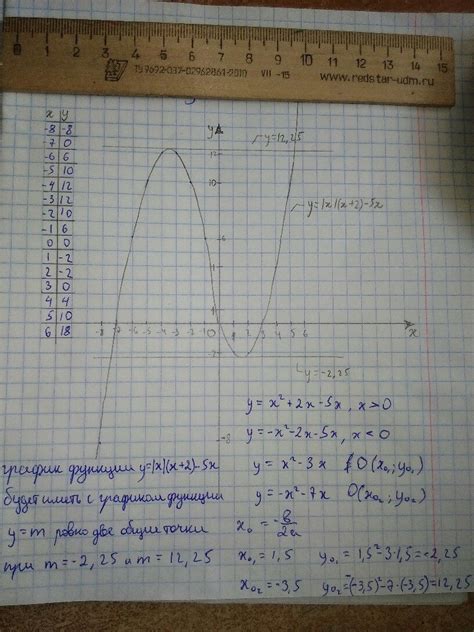 0 1 2 3 4 5 6 7 8 9 10 11 12 13 14 15
ТУ 9692-037-02962861-2010 VII -15 www.redstar-udm.ru
x y
-8 -8
-7 0
-6 6
-5 10
-4 12
-3 12
-2 10
-1 6
0 0
1 -2
2 -2
3 0
4 4
5 10
6 18
y
y=12,25
12
10
y=|x|(x+2)-5x
6
1
-8 -7 -6 -5 -4 -3 -2 -1 0 1 2 3 4 5 6 x
-2
y=-2,25
-8
y=x²+2x-5x, x>0
y=-x²-2x-5x, x<0
график функции y=|x|(x+2)-5x
y=x²-3x O(x₀₁;y₀₁)
будет иметь с графиком функции
y=-x²-7x O(x₀₂;y₀₂)
y=m ровно две общие точки
x₀=-в/2a
при m=-2,25 и m=12,25
x₀₁=1,5 y₀₁=1,5²-3·1,5=-2,25
x₀₂=-3,5 y₀₂=-(-3,5)²-7·(-3,5)=12,25